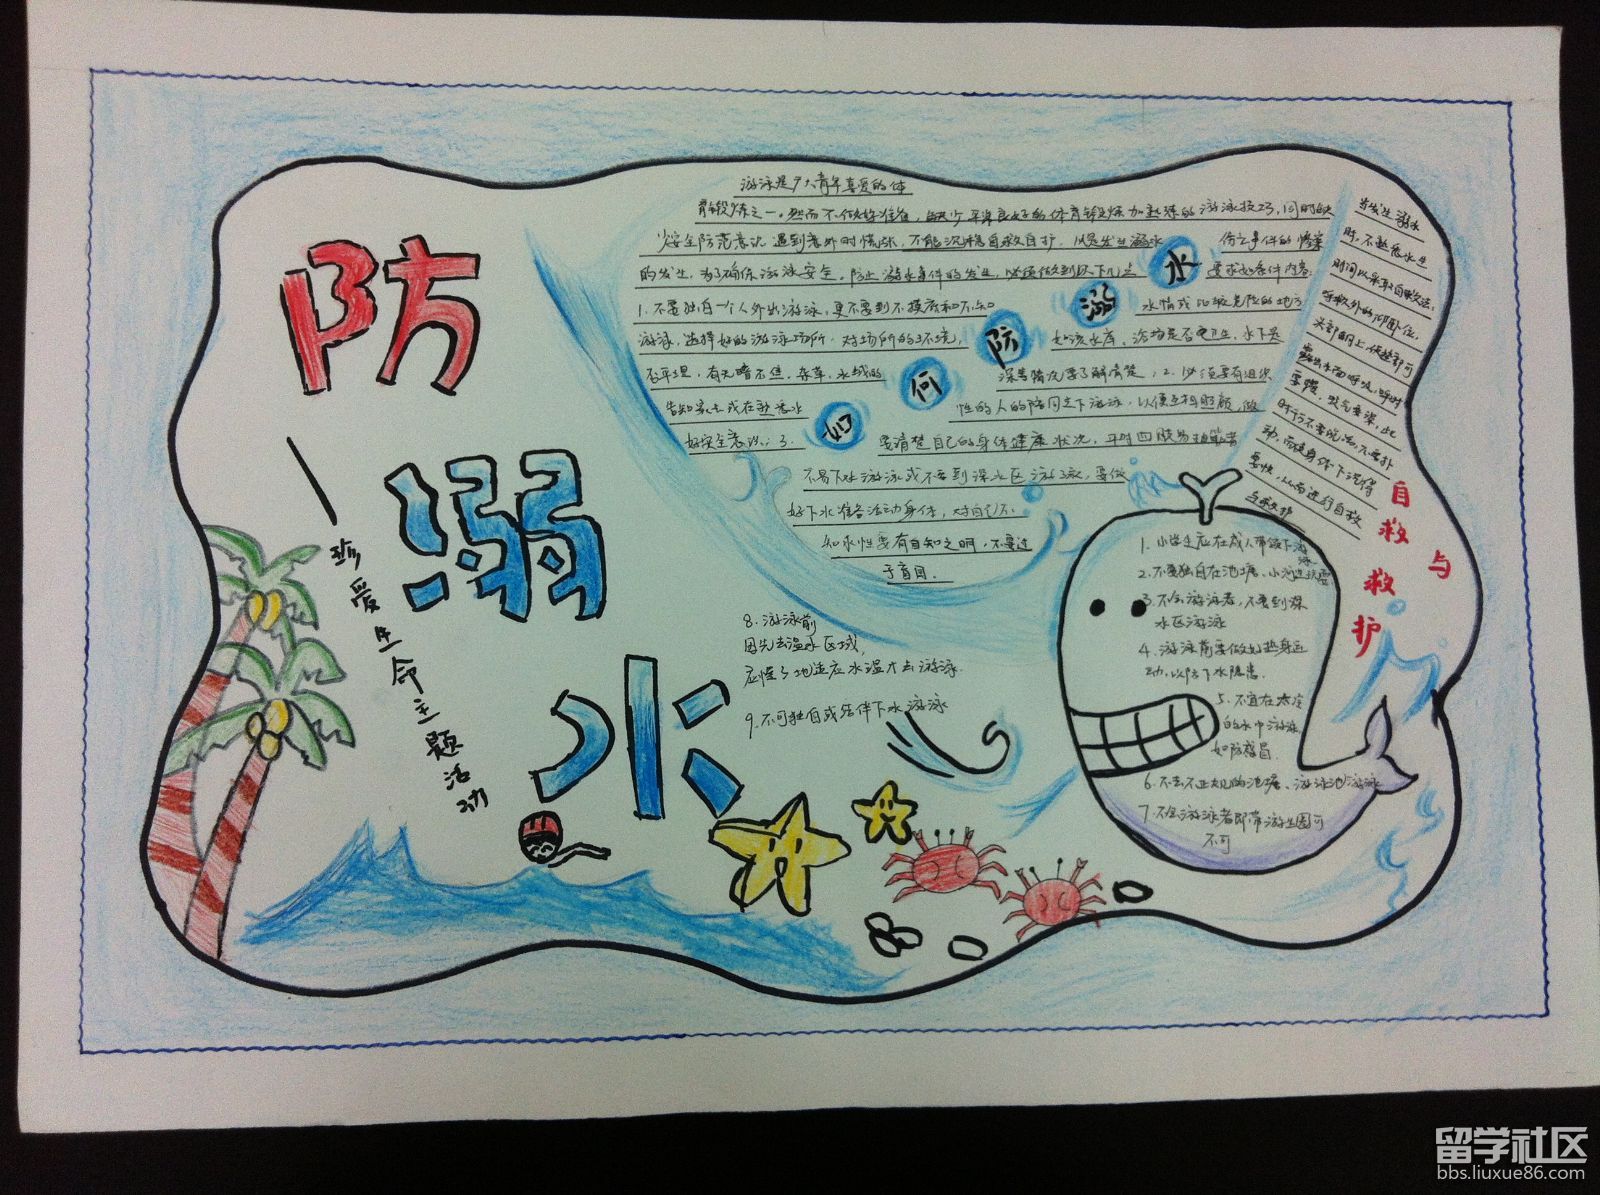 防
溺
水
珍爱生命主题活动
游泳是广大青年喜爱的体
育锻炼之一。然而不做好准备，缺少平深良好的体育锻炼加熟练的游泳技巧，同时缺
少安全防范意识，遇到意外时慌张，不能沉稳自救自护，以是发生溺水 伤亡事件的惨案
的发生，为了确保游泳安全，防止溺水事件的发生，必须做到以下几点 要求如条件内容
1.不要独自一个人外出游泳，更不要到不摸底和不知 水情或比较危险的地方
游泳，选择好的游泳场所，对场所的环境， 如该水库，浴场是否卫生，水下是
否平坦，有无暗礁，杂草，水域的 深等情况要了解清楚；2.必须要有组织
告知家长或在熟悉水 性的人的陪同之下游泳，以便互相照顾，做
好安全意识；3. 要清楚自己的身体健康状况，平时四肢易抽筋者
不易下处游泳或不要到深水区游泳，要做
好下水准备活动身体，对自己不
知水性要有自知之明，不要过
于盲目.
如何防溺水
当发生溺水
时，不熟悉水性
时间以采取自救法：
呼救外的仰卧位，
头部朝上，使鼻部可
露出水面呼吸，呼时
要慢，吸气要深，此
时千万不要慌乱，不要扑
动，而使身体下沉得
要快，从而进行自救
自救护
自救与救护
1.小学生应在成人带领下游泳
2.不要独自在池塘、小河边玩耍
3.不会游泳者，不要到深
水区游泳
4.游泳前要做好热身运
动，以防下水隐患.
5.不宜在太凉
的水中游泳
如防感冒.
6.不去不正规的池塘、游泳池游泳
7.不会游泳者即带游生圈可
不可
8.游泳前
因先去温水区域，
应慢慢地适应水温才去游泳.
9.不可独自或结伴下水游泳
留学社区
bbs.liuxue86.com